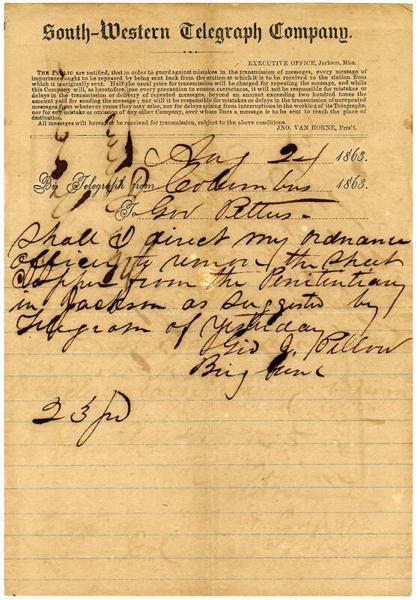 South-Western Telegraph Company.
EXECUTIVE OFFICE, Jackson, Miss.
THE PUBLIC are notified, that in order to guard against mistakes in the transmission of messages, every message of
importance ought to be repeated by being sent back from the station at which it is to be received to the station from
which it is originally sent. Half the usual price for transmission will be charged for repeating the message, and while
this Company will, as heretofore, use every precaution to ensure correctness, it will not be responsible for mistakes or
delays in the transmission or delivery of repeated messages, beyond an amount exceeding two hundred times the
amount paid for sending the message; nor will it be responsible for mistakes or delays in the transmission of unrepeated
messages from whatever cause they may arise, nor for delays arising from interruptions in the working of its Telegraphs,
nor for any mistake or omission of any other Company, over whose lines a message is to be sent to reach the place of
destination.
All messages will hereafter be received for transmission, subject to the above conditions.
JNO. VAN HORNE, Pres't.
Aug 24 1863.
By Telegraph from Columbus 1863.
To Gov Pettus.
Shall I direct my ordnance
officer to remove the sheet
Copper from the Penitentiary
in Jackson as suggested by
Telegram of Yesterday
Gid J. Pillow
Brig Genl
23 pd